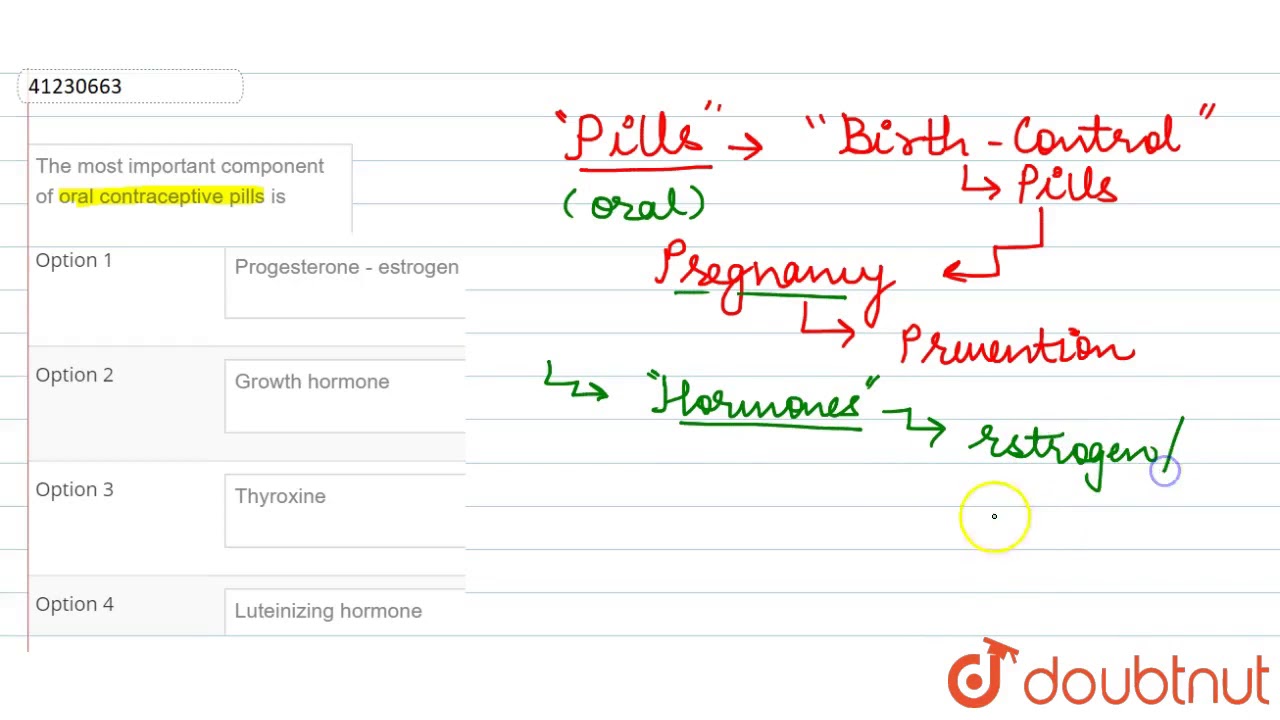 41230663
The most important component
of oral contraceptive pills is
Option 1
Progesterone - estrogen
Option 2
Growth hormone
Option 3
Thyroxine
Option 4
Luteinizing hormone
"Pills" → "Birth - Control"
(oral)
↳ Pills
Pregnancy
↳ Prevention
↳ "Hormones" → estrogen/
doubtnut